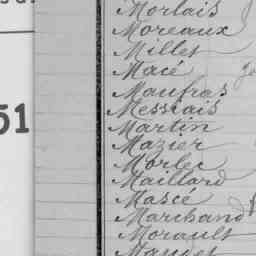 51
Morlais
Moreaux
Millet
Macé
Maufras
Messiais
Martin
Mazier
Morlec
Maillard
Mascé
Marchand
Morault